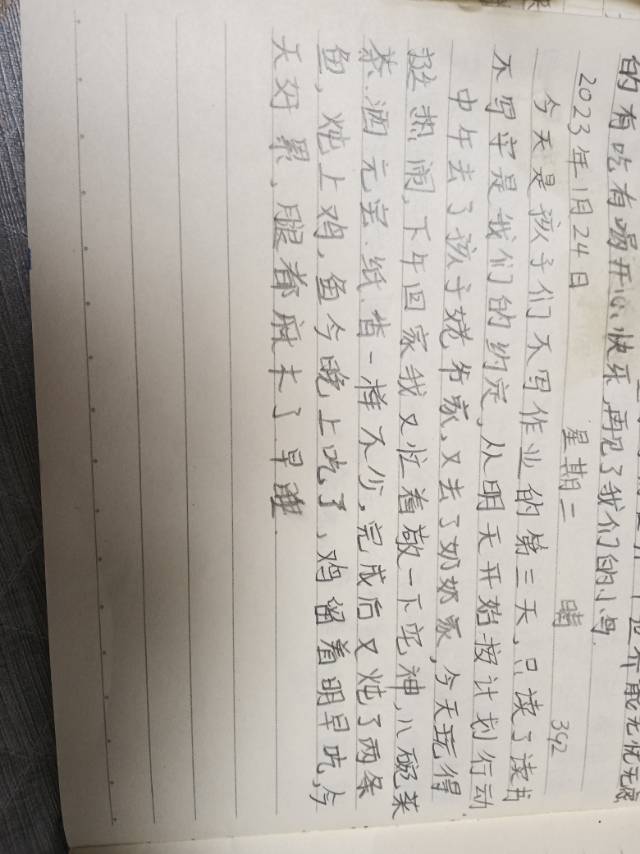 的有吃有喝开心快乐,再见了我们的小鸟.
2023年1月24日 星期二 晴 392
今天是孩子们不写作业的第三天,只读了读书
不写字是我们的约定,从明天开始按计划行动.
中午去了孩子姥爷家,又去了奶奶家,今天玩得
挺热闹,下午回家我又忙着敬一下宅神,八碗菜
茶.酒元宝.纸.昔一样不少,完成后又炖了两条
鱼,炖上鸡,鱼今晚上吃了,鸡留着明早吃,今
天好累,腿都麻木了早睡.